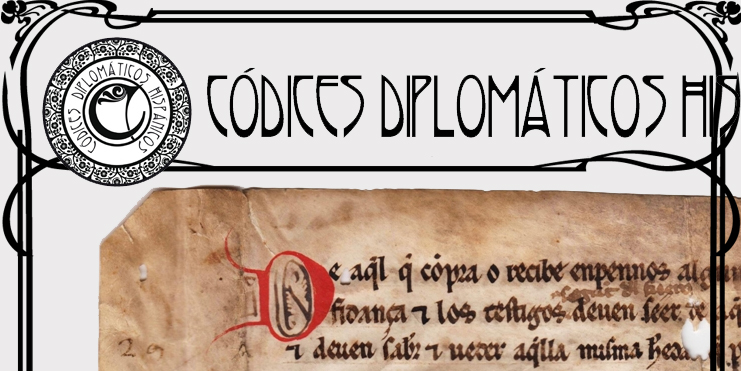 CÓDICES DIPLOMÁTICOS HISPÁNICOS
CÓDICES DIPLOMÁTICOS HIS
De aq̃l q̃ cõpra o recibe enpennos algun
fidança ⁊ los testigos deuen seer de aq̃
⁊ deuen sab̃r ⁊ ueer aq̃lla misma
29